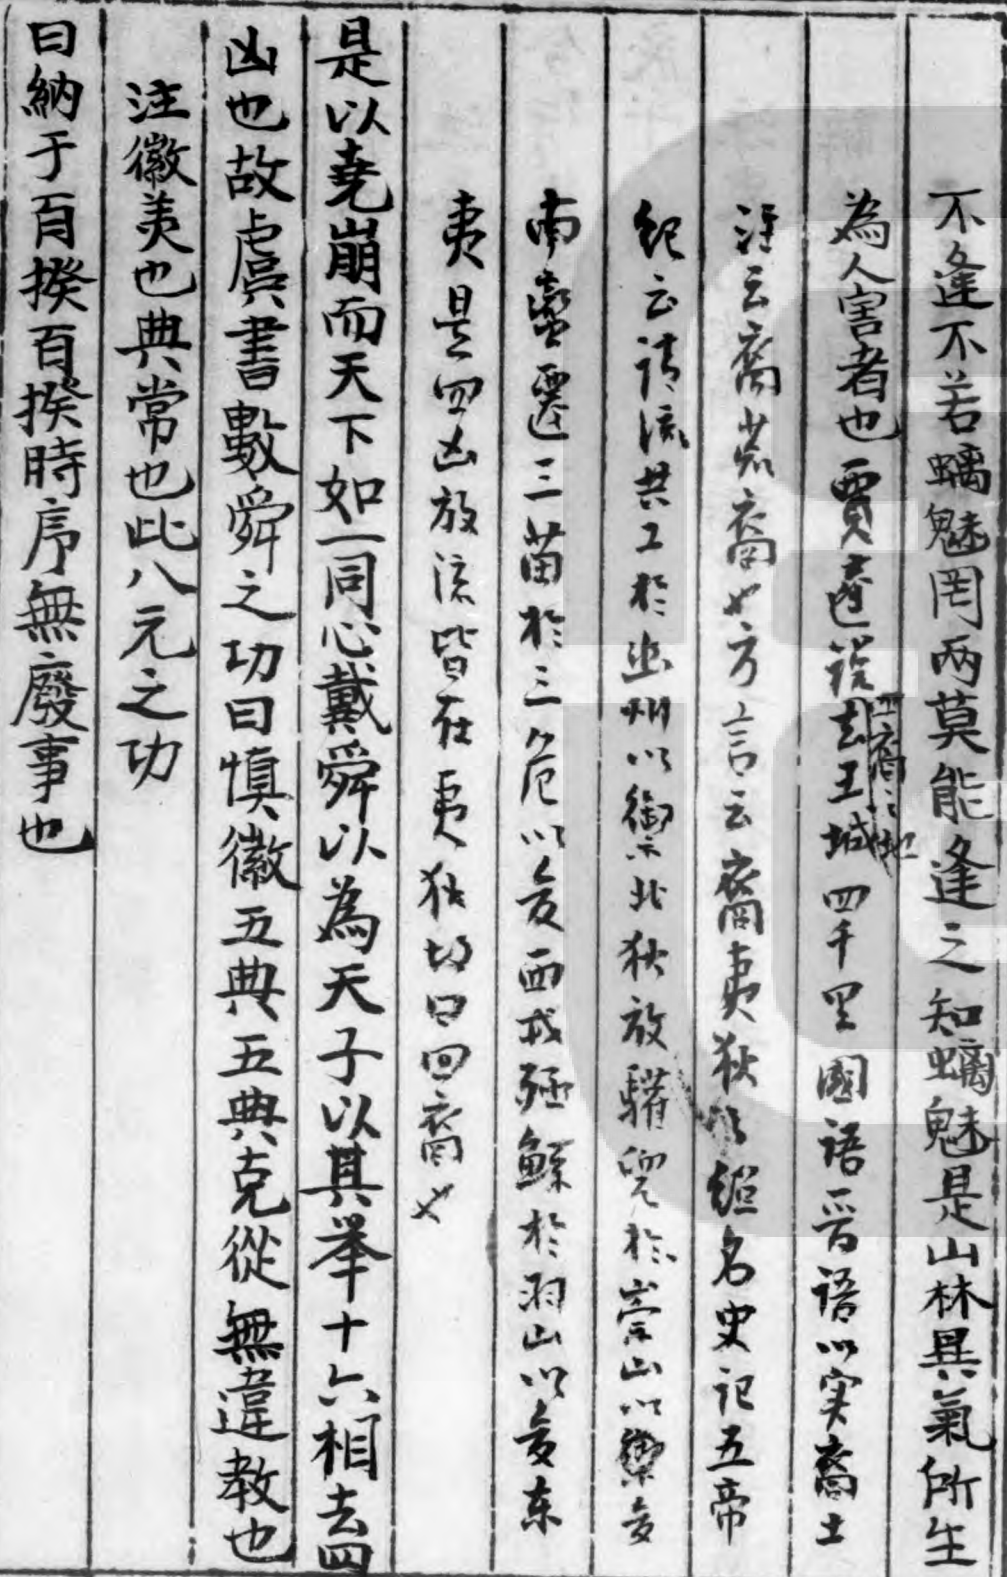 不逢不若螭魅罔兩莫能逢之知螭魅是山林異氣所生
為人害者也賈逵說四裔之地去王城四千里國語晋語以实裔土
注云裔荒裔也方言云裔夷狄以緫名史記五帝
紀云請流共工於幽州以御北狄放驩兜於崇山以變
南蠻遷三苗於三危以变西戎殛鯀於羽山以变东
夷是四凶放流皆在夷狄故曰四裔也
是以堯崩而天下如一同心戴舜以為天子以其举十六相去四
凶也故虞書數舜之功曰慎徽五典五典克從無違教也
注徽美也典常也此八元之功
曰納于百揆百揆時序無廢事也